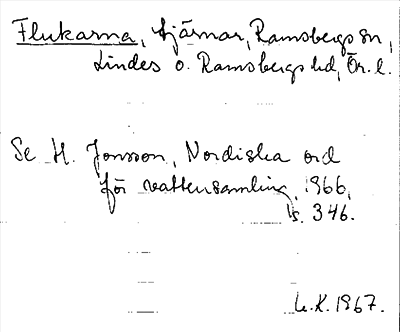 Flukarna, tjärnar, Ramsbergs sn,
Lindes o. Ramsbergs hd, Ör. l.
Se H. Jonsson, Nordiska ord
för vattensamling, 1966,
s. 346.
L.K. 1967.